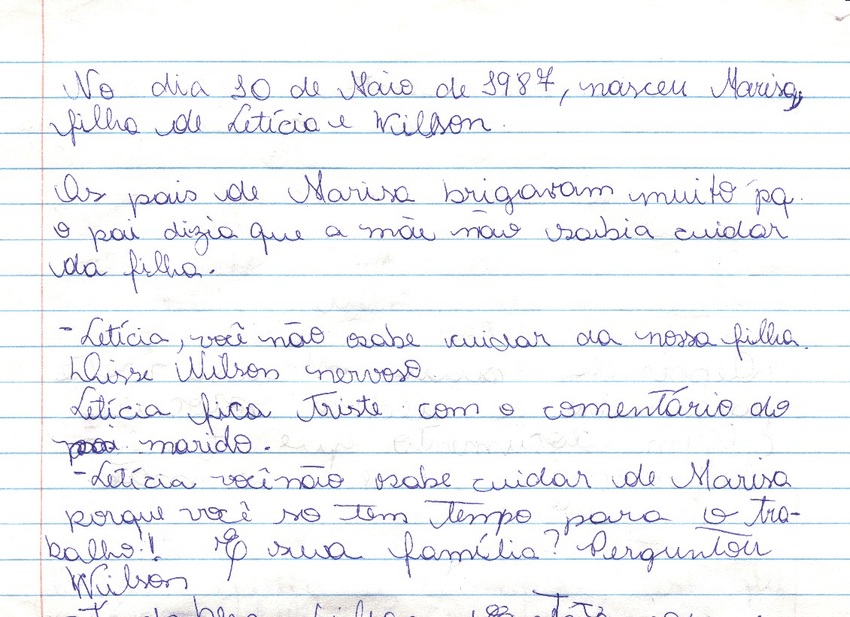 No dia 10 de Maio de 1987, nasceu Marisa,
filha de Letícia e Wilson.
Os pais de Marisa brigavam muito pq.
o pai dizia que a mãe não sabia cuidar
da filha.
- Letícia, você não sabe cuidar da nossa filha.
Disse Wilson nervoso.
Letícia fica triste com o comentário do
marido.
- Letícia você não sabe cuidar de Marisa
porque você so tem tempo para o tra-
balho!! E sua família? Perguntou
Wilson